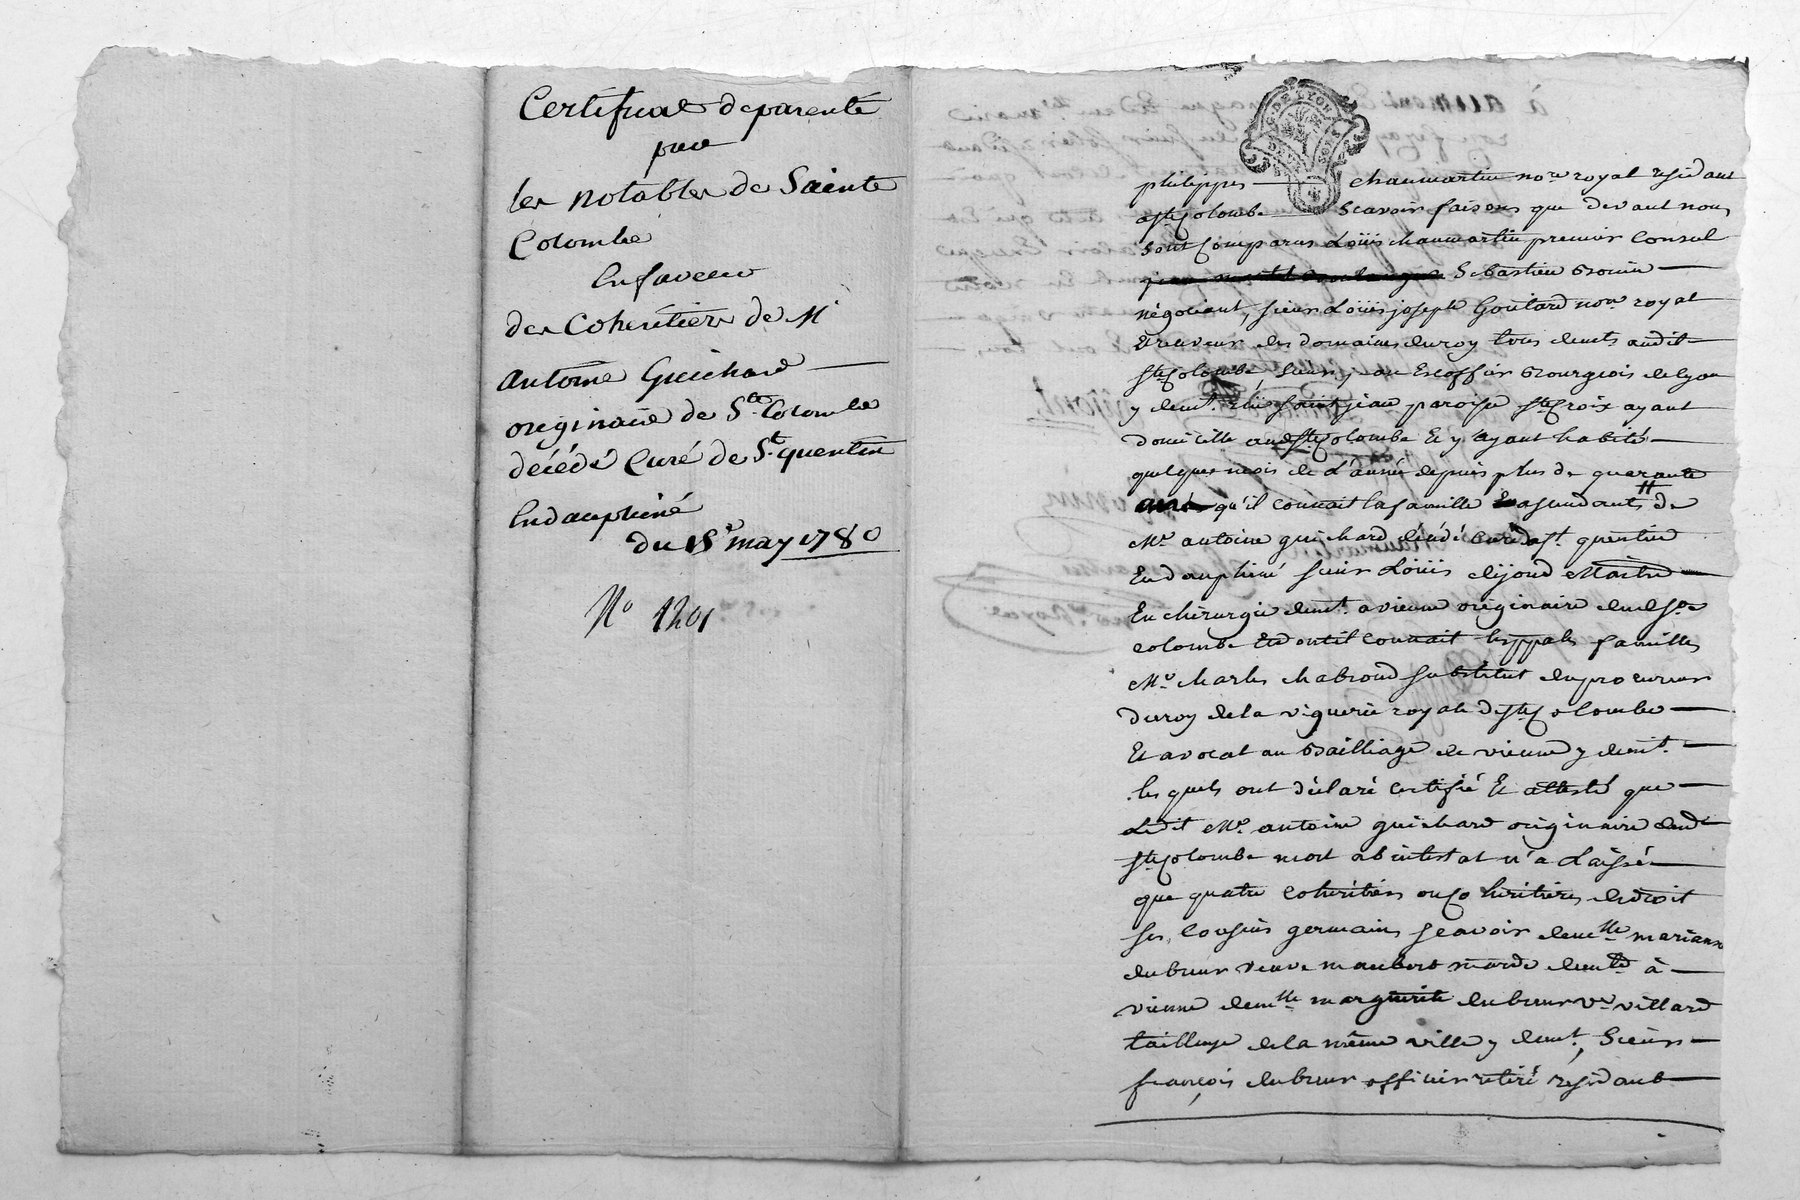 Certificat de parenté
par
les notables de Sainte
Colombe
En faveur
des Cohéritiers de Mr
antoine Guichard
originaire de Ste Colombe
décédé Curé de St quentin
En dauphiné
du 15e may 1780
No 1201
GEN. DE LYON
DEUX SOLS
philippes chaumartin nore royal residant
a ste Colombe Scavoir faisons que devant nous
Sont Comparus Loüis chaumartin premier Consul
Sebastien Bronin
négotiant, sieur Loüis joseph Goutard nore royal
Receveur des domaines du roy tous demts audit
Ste Colombe, sieur jean Escoffier Bourgeois de lyon
y demt. rüe saint jean paroisse ste Croix ayant
domicille audt ste Colombe Et y ayant habité
quelques mois de L'année depuis plus de quarante
ans qu'il connait la famille Et ascendants de
Mre antoine guichard décédé curé de st quentin
En dauphiné sieur Loüis dijond Maitre
En chirurgie demt. a vienne originaire dud. Ste
colombe Et dont il connait les ppales familles
Me. charles chabroud substitut du procureur
du roy de la viguerie royale de ste Colombe
Et avocat au Bailliage de vienne y demt.
les quels ont déclaré certifié Et attesté que
Ledit Mre. antoine guichard originaire dudt
ste Colombe mort abintestat n'a Laissé
que quatre coheritiers ou Co heritieres de droit
ses Cousins germains scavoir demlle marianne
dubeuf veuve maubert marde demte à
vienne demlle marguerite dubeuf ve villard
tailleuse de la même ville y demt., Sieur
françois dubeuf officier retiré residant